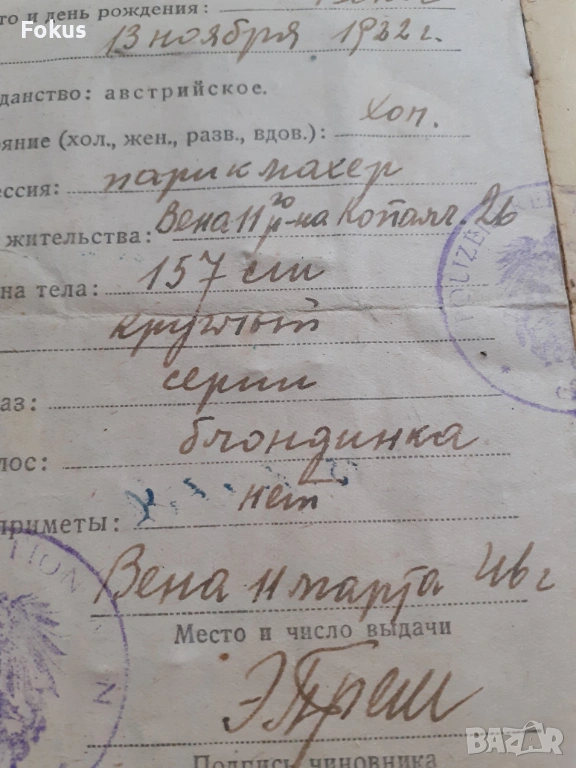 Fokus
то и день рождения:
13 ноября 1922 г.
данство: австрийское.
ояние (хол., жен., разв., вдов.): хол.
ессия: парикмахер
жительства: Вена 11го р-на 26
на тела: 157 cm
круглый
аз: серый
лос: блондинка
приметы: нет
Вена 11 марта 46 г
Место и число выдачи
Подпись чиновника
POLIZEI
TION
bazar.bg